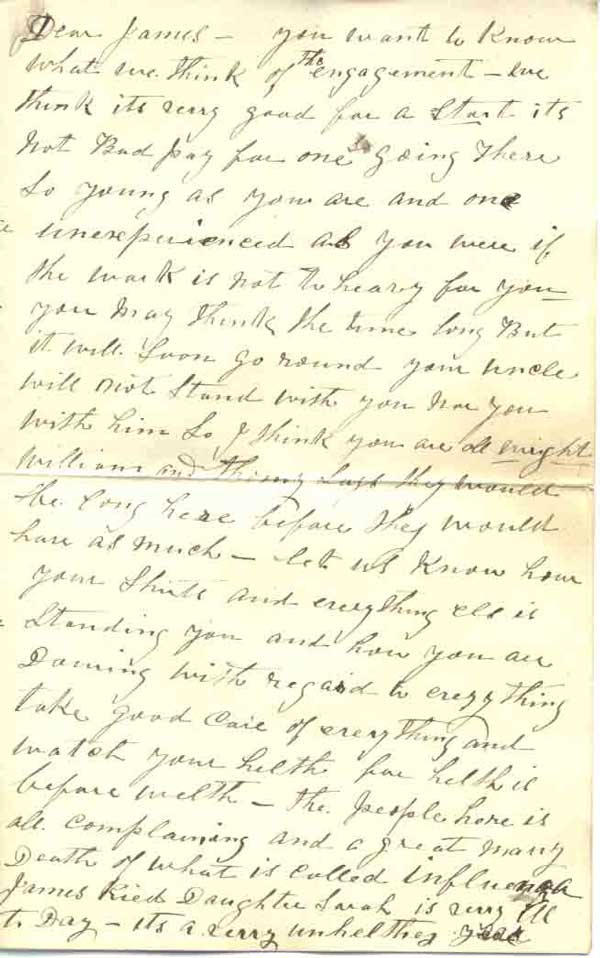 Dear James - you want to Know
what we think of the engagement - we
think its very good for a Start its
Not Bad pay for one going there
So young as you are and one
unexperienced as you were if
the work is not to heavy for you
you May think the time long But
it will Soon go round your uncle
will not Stand with you Nor you
with him So I think you are all wright
William and says they would
be long here before they would
have as much - let us Know how
your Shirts and everything els is
Standing you and how you are
Dowing with regard to every thing
take good Care of everything and
watch your helth for helth is
before welth - the people here is
all complaining and a great many
Death of what is called influenza
James Kied Daughter Sarah is very ill
to Day - its a very unhelthey year